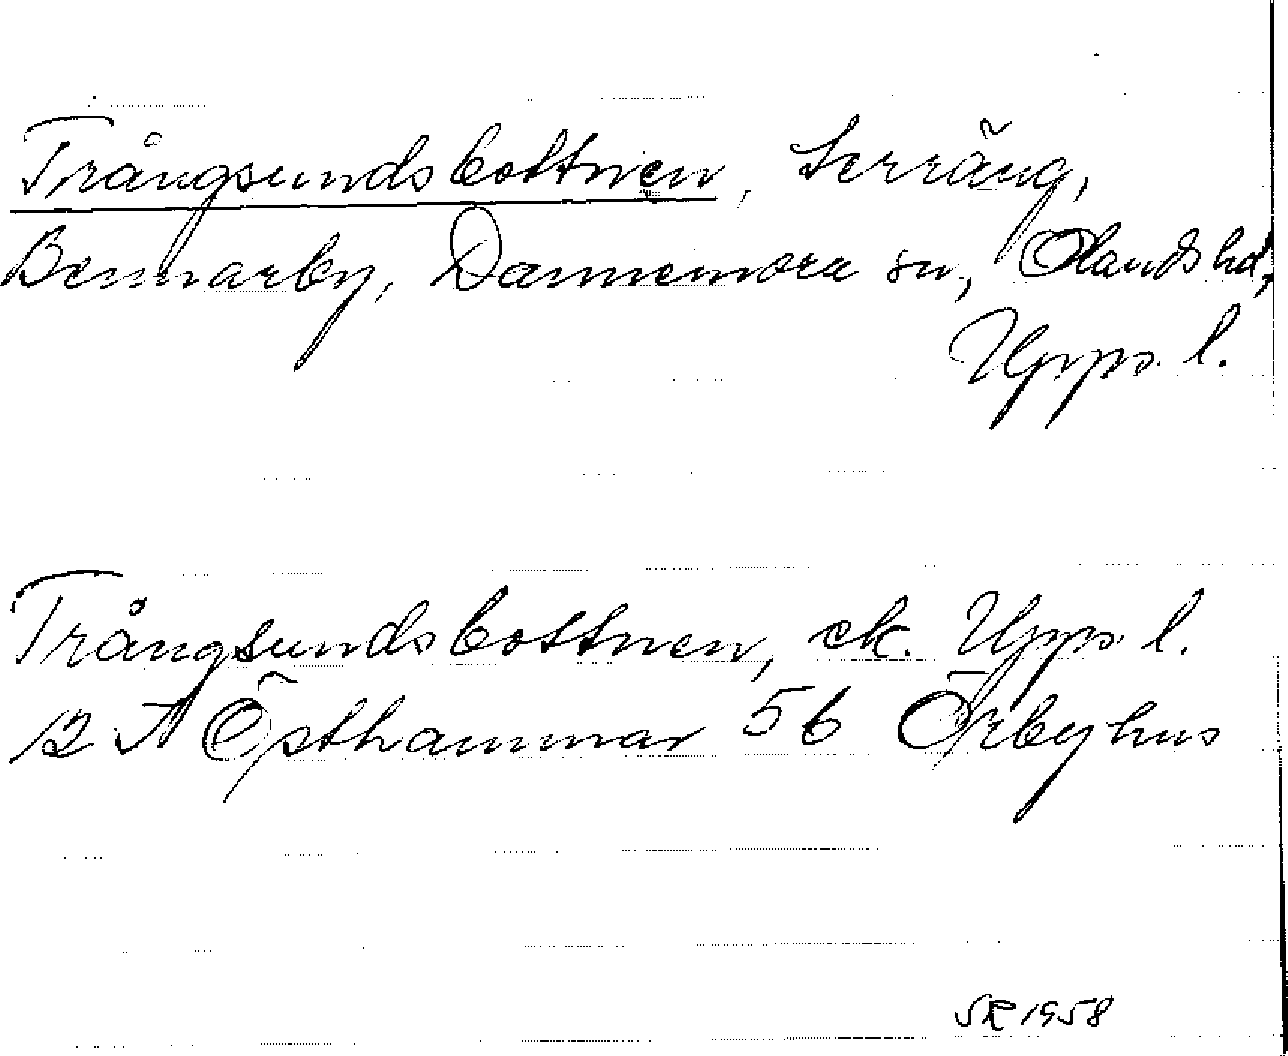 Trångsundsbottnen, terräng,
Bennarby, Dannemora sn, Olands hd,
Upps. l.
Trångsundsbottnen, ek. Upps l.
12 Östhammar 56 Örbyhus
SR 1958